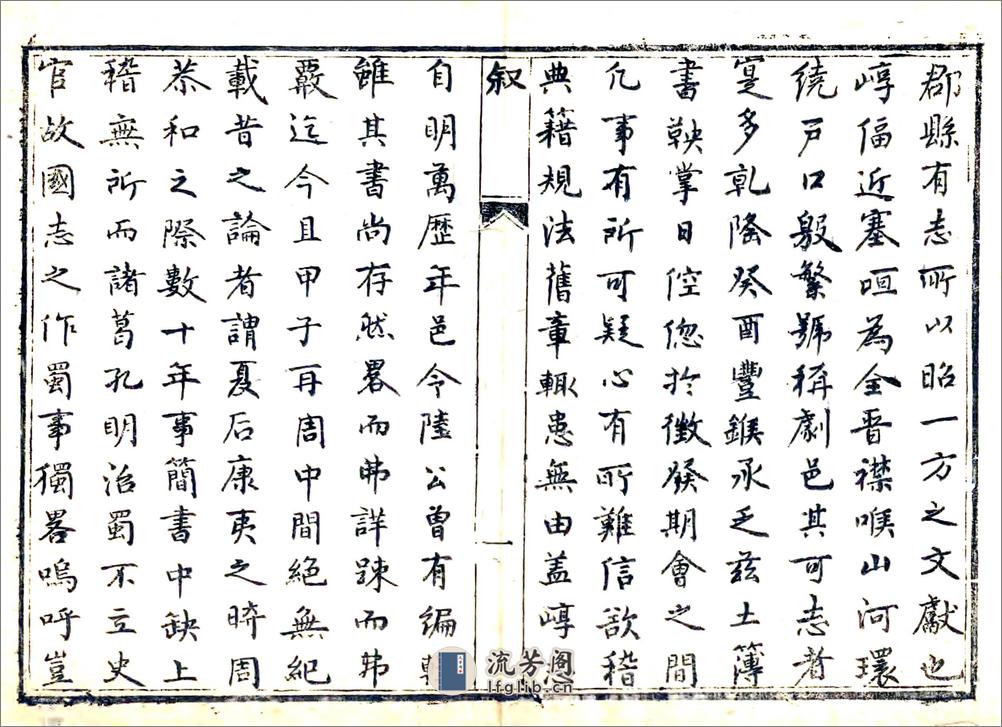 郡縣有志所以昭一方之文獻也
崞偪近塞垣為全晋襟喉山河環
繞戶口殷繁號稱劇邑其可志者
寔多乾隆癸酉豐鍭承乏茲土簿
書鞅掌日倥偬扵徵發期會之間
凢事有所可疑心有所難信欲稽
典籍規法舊章輙患無由盖崞志
叙
一
自明萬歷年邑令陸公曾有編輯
雖其書尚存然畧而弗詳踈而弗
覈迄今且甲子再周中間絕無紀
載昔之論者謂夏后康夷之時周
恭和之際數十年事簡書中缺上
稽無所而諸葛孔明治蜀不立史
官故國志之作蜀事獨畧嗚呼豈
流芳阁
lfglib.cn